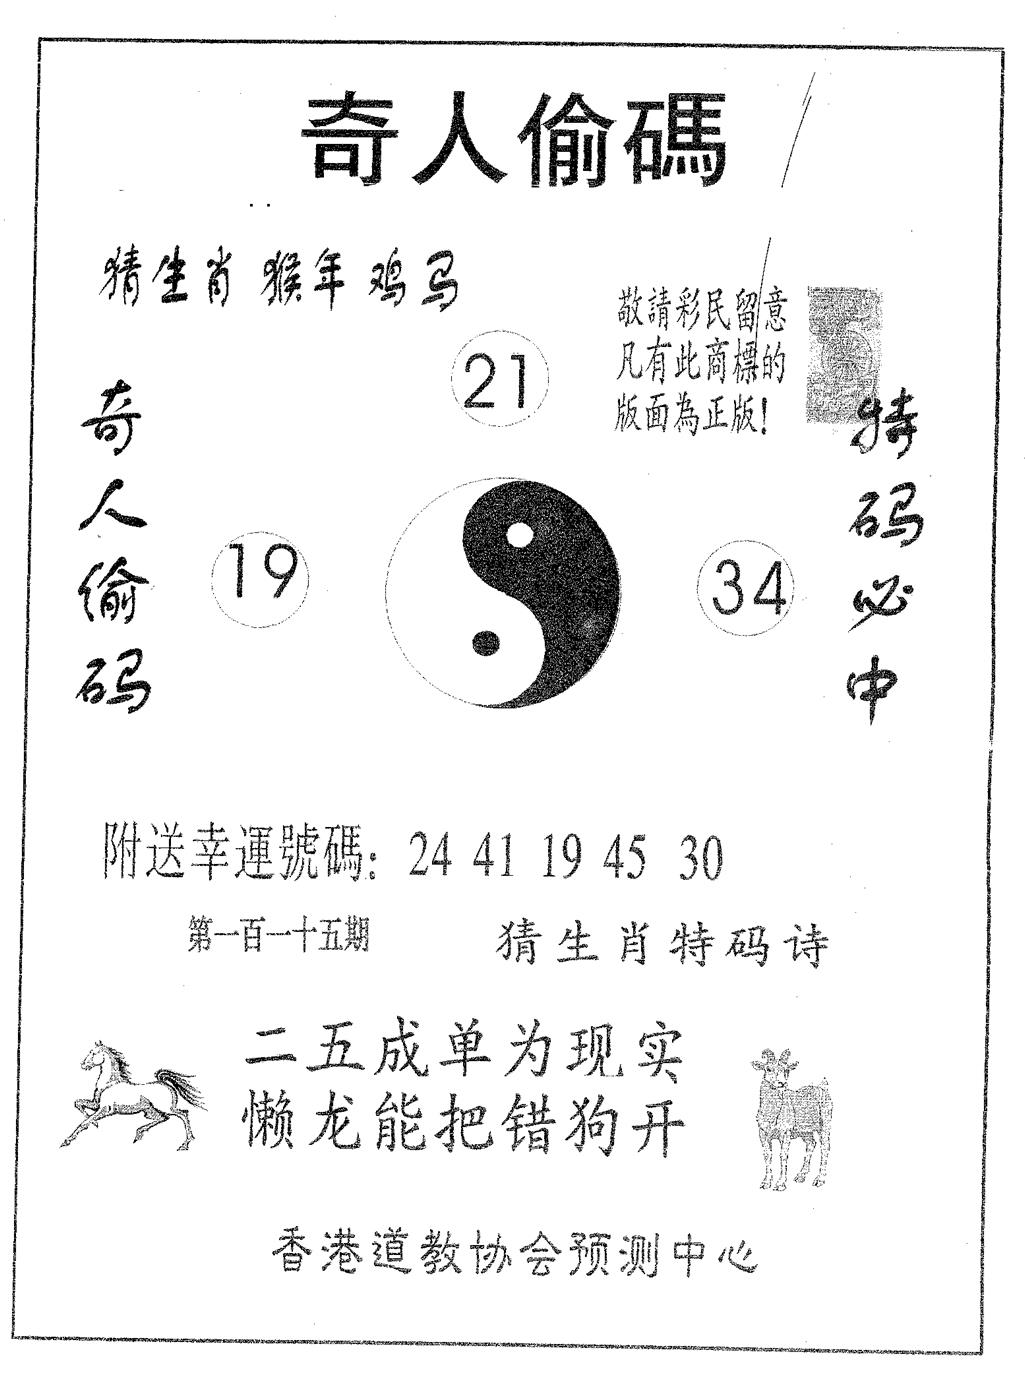 奇人偷碼
猜生肖 猴年 鸡马
敬請彩民留意
凡有此商標的
版面為正版!
21
奇人偷码
19
34
特码必中
附送幸運號碼: 24 41 19 45 30
第一百一十五期
猜生肖特码诗
二五成单为现实
懒龙能把错狗开
香港道教协会预测中心